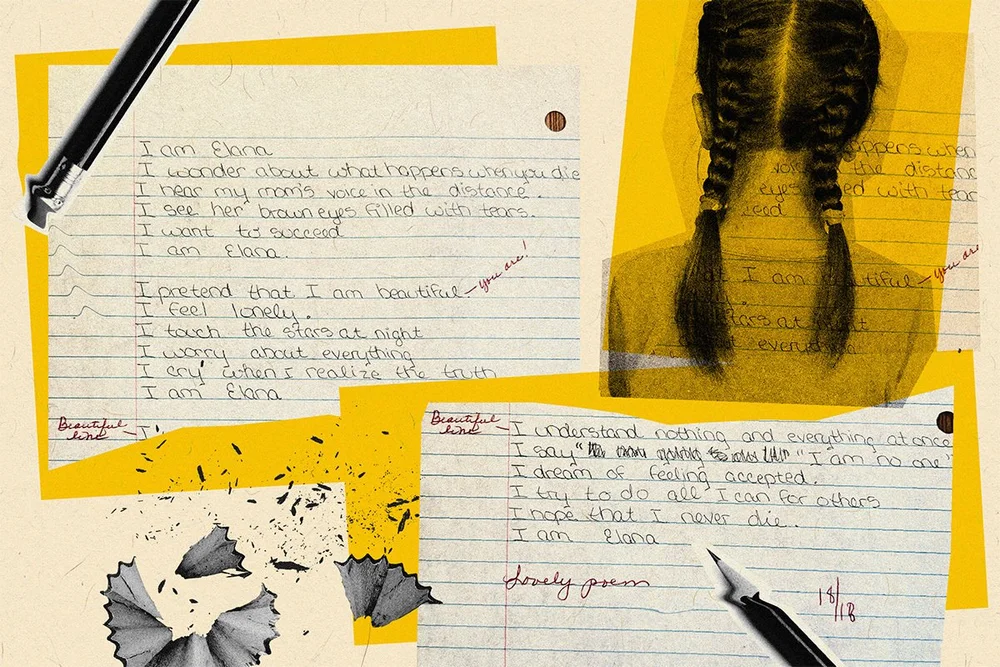 I am Elana
I wonder about what happens when you die
I hear my mom's voice in the distance.
I see her brown eyes filled with tears.
I want to succeed
I am Elana.
I pretend that I am beautiful. you are!
I feel lonely.
I touch the stars at night
I worry about everything
I cry when I realize the truth
I am Elana
Beautiful
line
I
appens when
voic in the distanc
eyes ed with tear
ceed
at I am tiful you are
y.
stars at t
everyth
Beautiful
line
I understand nothing and everything at once
I say " " I am no one"
I dream of feeling accepted.
I try to do all I can for others
I hope that I never die.
I am Elana
Lovely poem
18/18